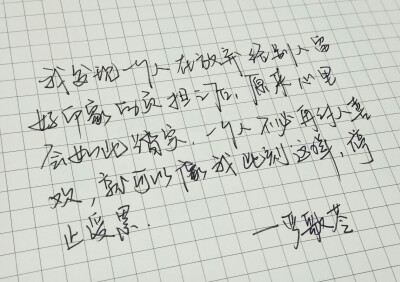 我发现一个人在放弃给别人留
好印象的负担之后，原来心里
会如此踏实。一个人不必再讨人喜
欢，就可以像我此刻这样，停
止受累。
—马敬芩